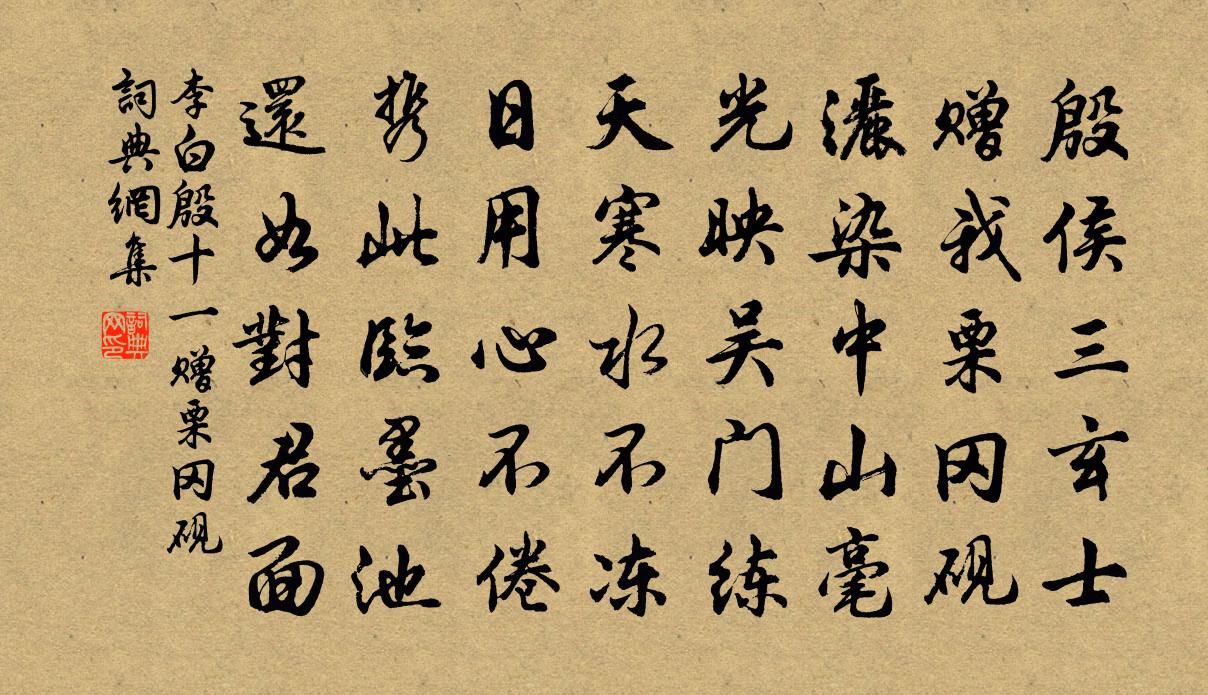 殷侯三玄士
赠我栗冈砚
灑染中山毫
光映吴门练
天寒水不冻
日用心不倦
携此臨墨池
還如對君面
李白殷十一赠栗冈砚
詞典網集
詞典网印